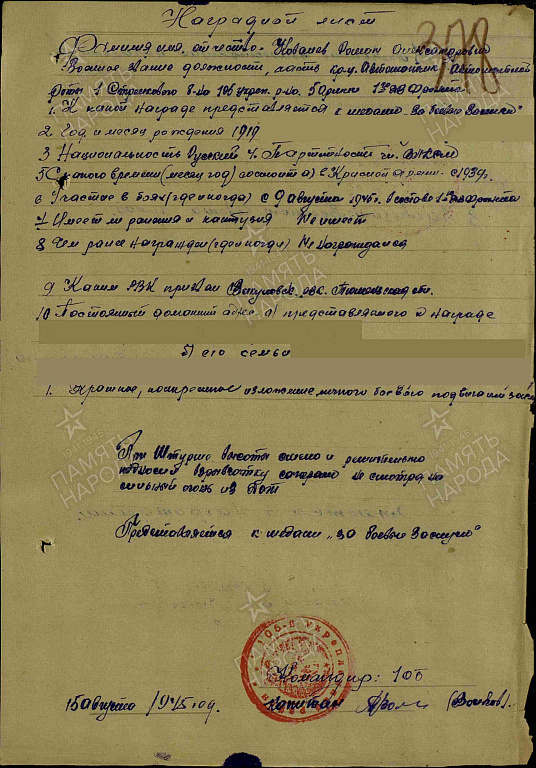 Наградной лист
378
Фамилия имя, отчество. Роман Александрович
Военное звание должность, часть кр-ц. Автоматчик
Роты 1 Стрелкового 106 укреп. р-на. 5 Армии 1го фронта
1. К какой награде представляется к медали "За боевые Заслуги"
2. Год и месяц рождения 1919
3 Национальность Русский 4. Партийность
5 С какого времени (месяц, год) состоит в Красной арми. с 1939г.
6 Участие в боях (где и когда) с 9 августа 1945г. в составе фронта
7 Имеет ли ранения и контузия Не имеет
8 Чем ранее награжден (где и когда) Не награждался
9 Каким РВК призван Викуловск. рвк. обл.
10 Постоянный домашний адрес а) представляемого к награде
б) его семьи
1. Краткое, конкретное изложение личного боевого подвига или
При Штурме высоты смело и решительно
подносил взрывчатку саперам не смотря на
сильный огонь из Дот
Представляется к медали "За боевые Заслуги"
106-й Укреплен
Командир: 1 ОПБ
15 августа 1945 год. Капитан (Волков).
ПАМЯТЬ НАРОДА
ПАМЯТЬ НАРОДА
ПАМЯТЬ НАРОДА
ПАМЯТЬ НАРОДА
ПАМЯТЬ НАРОДА
ПАМЯТЬ НАРОДА